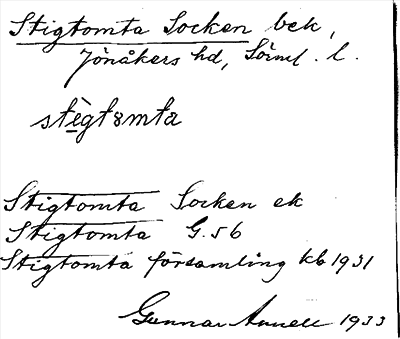 Stigtomta Socken bek,
Jönåkers hd, Sörml. l.
stègt8mta
Stigtomta Socken ek
Stigtomta G.56
Stigtomta församling kb 1931
Gunnar Annell 1933